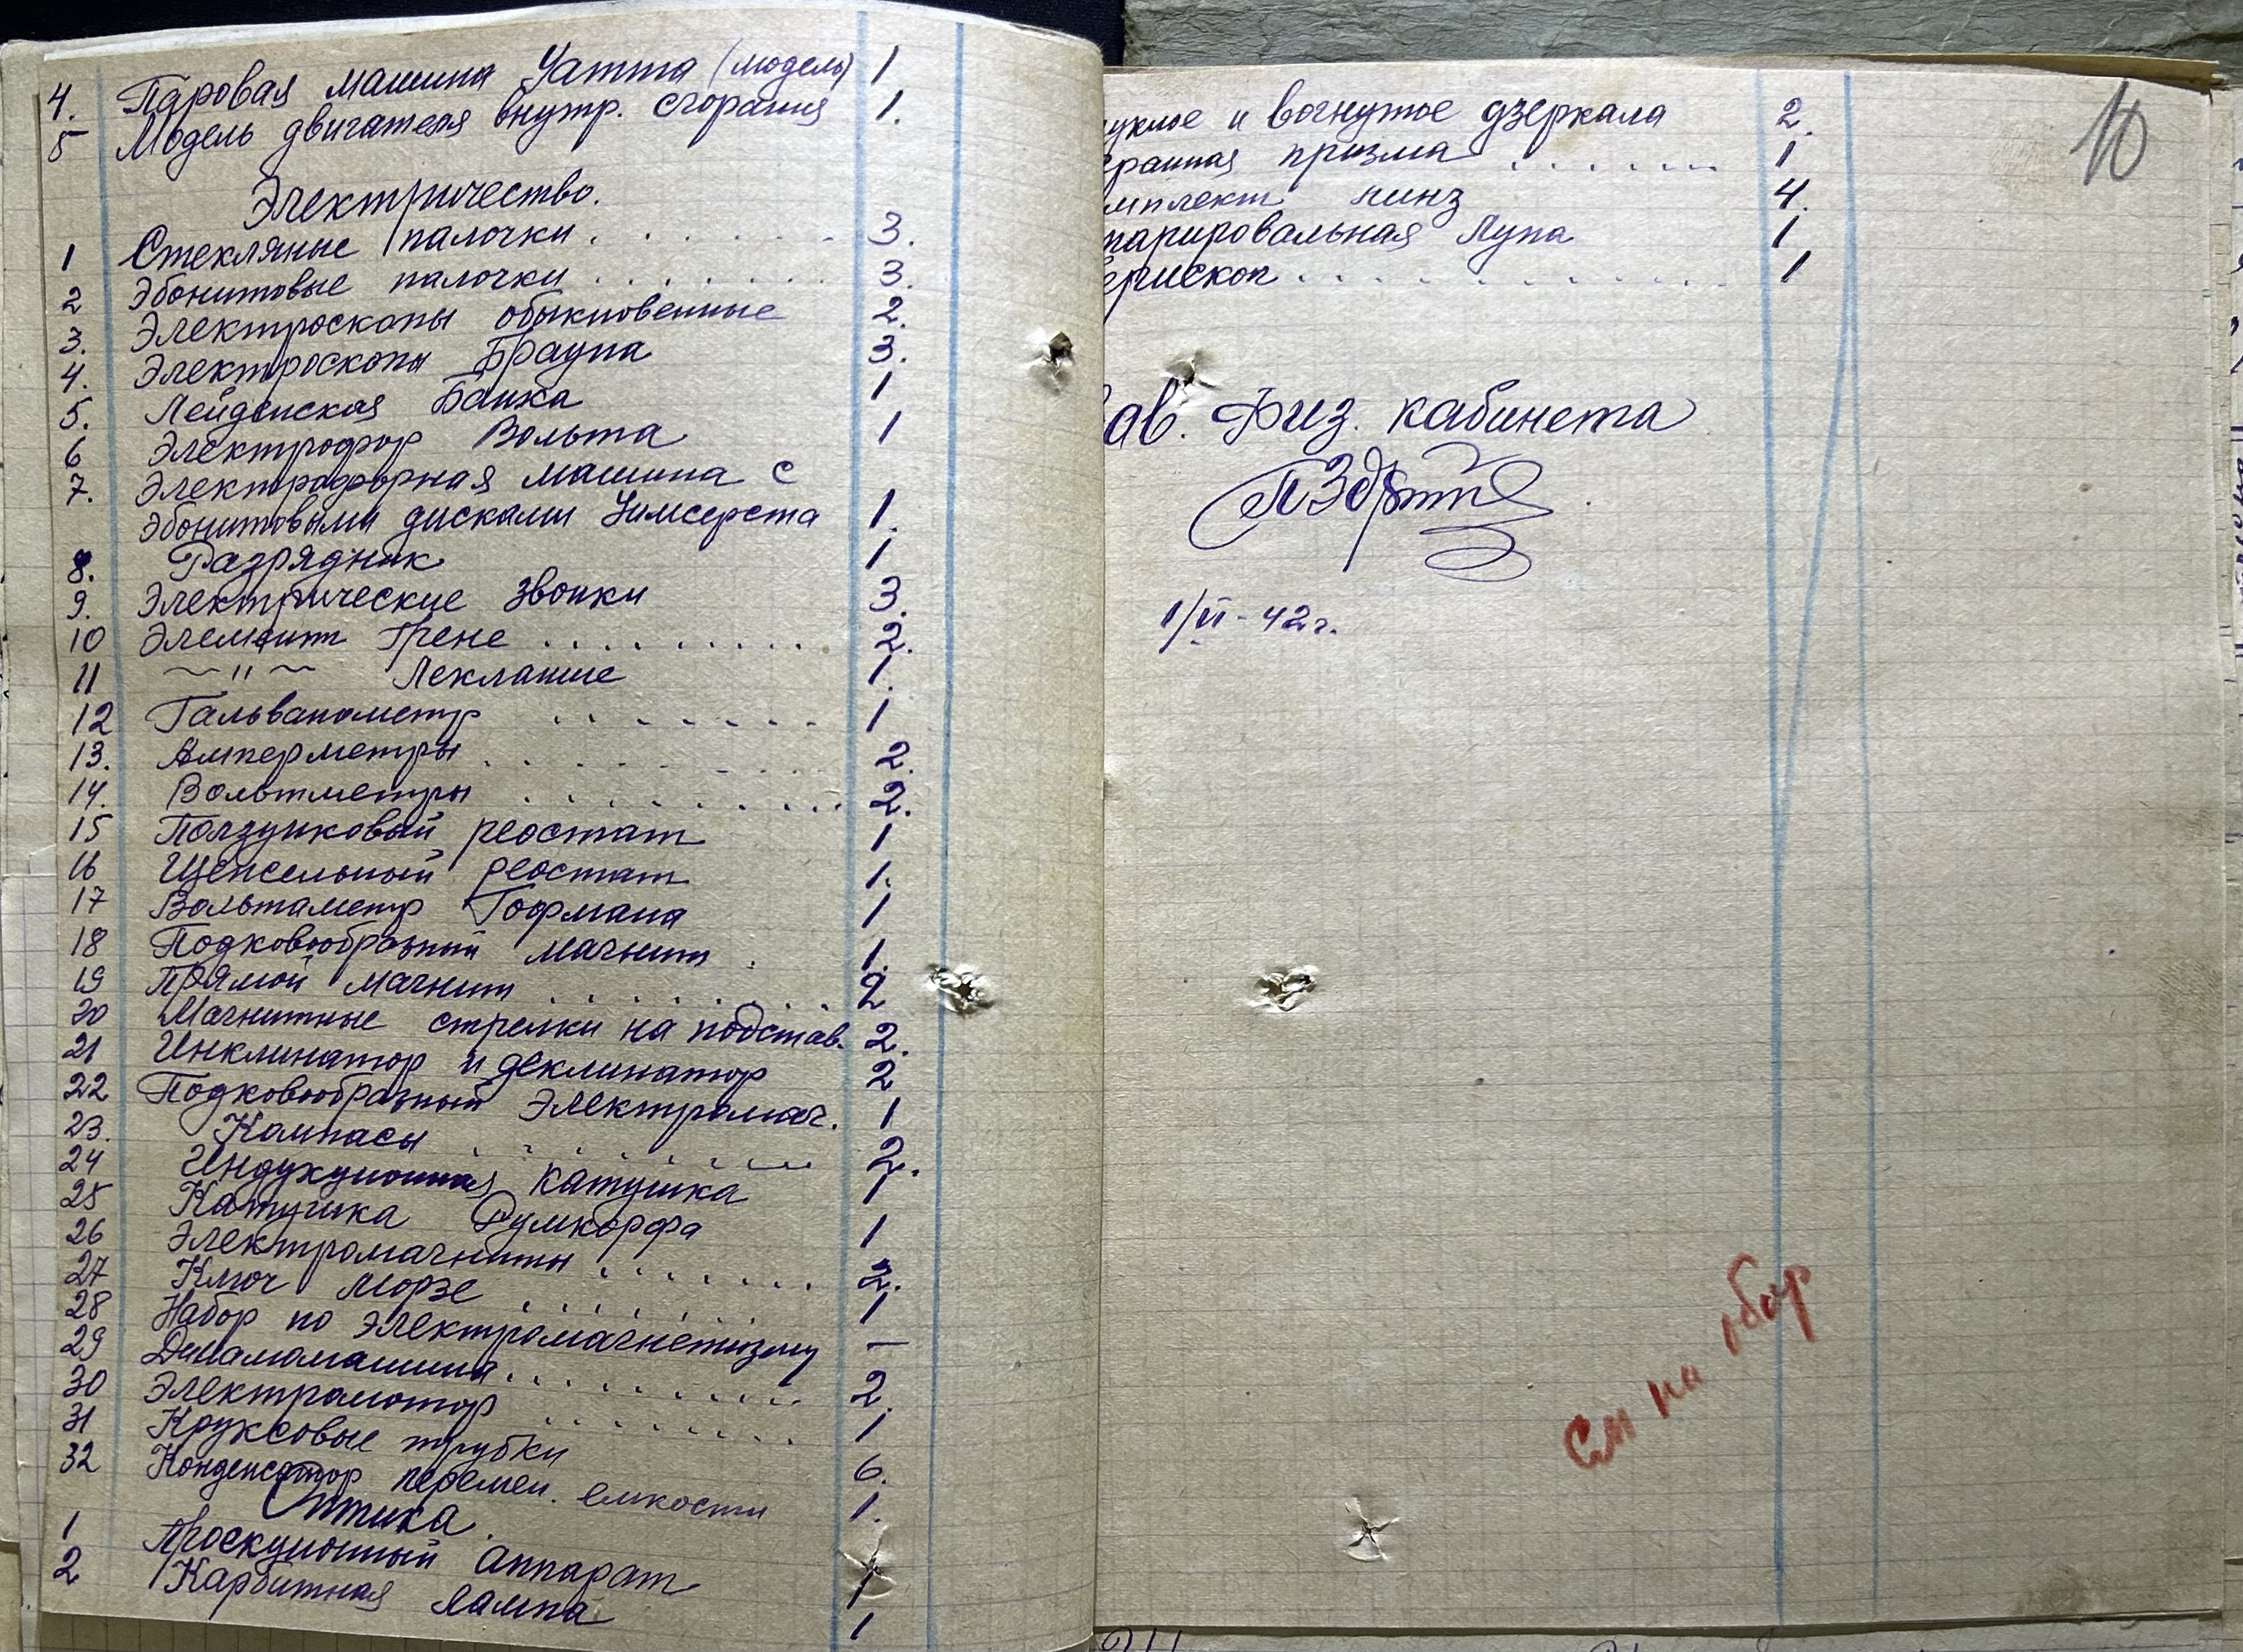 4. Паровая машина Уатта (модель) 1
5 Модель двигателя внутр. сгорания 1.
Электричество.
1 Стекляные палочки . . . . . . . 3.
2 Эбонитовые палочки . . . . . . . . 3.
3. Электроскопы обыкновенные 2.
4. Электроскопы Брауна 3.
5. Лейденская Банка 1
6 Электрофор Вольта 1
7. Электрофорная машина с
эбонитовыми дисками Уимсерста 1.
8. Разрядник 1
9. Электрические звонки 3.
10 Элемент Грене . . . . . . . . . 2.
11 ~ " ~ Лекланше 1.
12 Гальванометр . . . . . . . 1
13. Амперметры . . . . . . . . . 2.
14. Вольтметры . . . . . . . . . . 2.
15 Ползунковый реостат 1
16 Щепсельный реостат 1.
17 Вольтаметр Гофмана 1
18 Подковообразный магнит . 1.
19 Прямой магнит . . . . . . . . . 2
20 Магнитные стрелки на подстав. 2.
21 Инклинатор и деклинатор 2
22 Подковообразный электромаг. 1
23. Компасы . . . . . . . . 2.
24 Индукционная катушка 1
25 Катушка Румкорфа 1
26 Электромагниты . . . . . . . 2.
27 Ключ Морзе . . . . . . 1
28 Набор по электромагнетизму —
29 Динамомашина . . . . . . . . . . 2.
30 Электромотор . . . . . . . . 1
31 Круксовые трубки 6.
32 Конденсатор перемен. емкости 1.
Оптика.
1 Проекционный аппарат 1
2 Карбитная лампа 1
10
уклое и вогнутое дзеркала 2.
гранная призма . . . . . . 1
мплект линз 4.
парировальная Лупа 1
ерископ . . . . . . . . . . . . 1
ав. Физ. кабинета
1/VI - 42 г.
См на обор